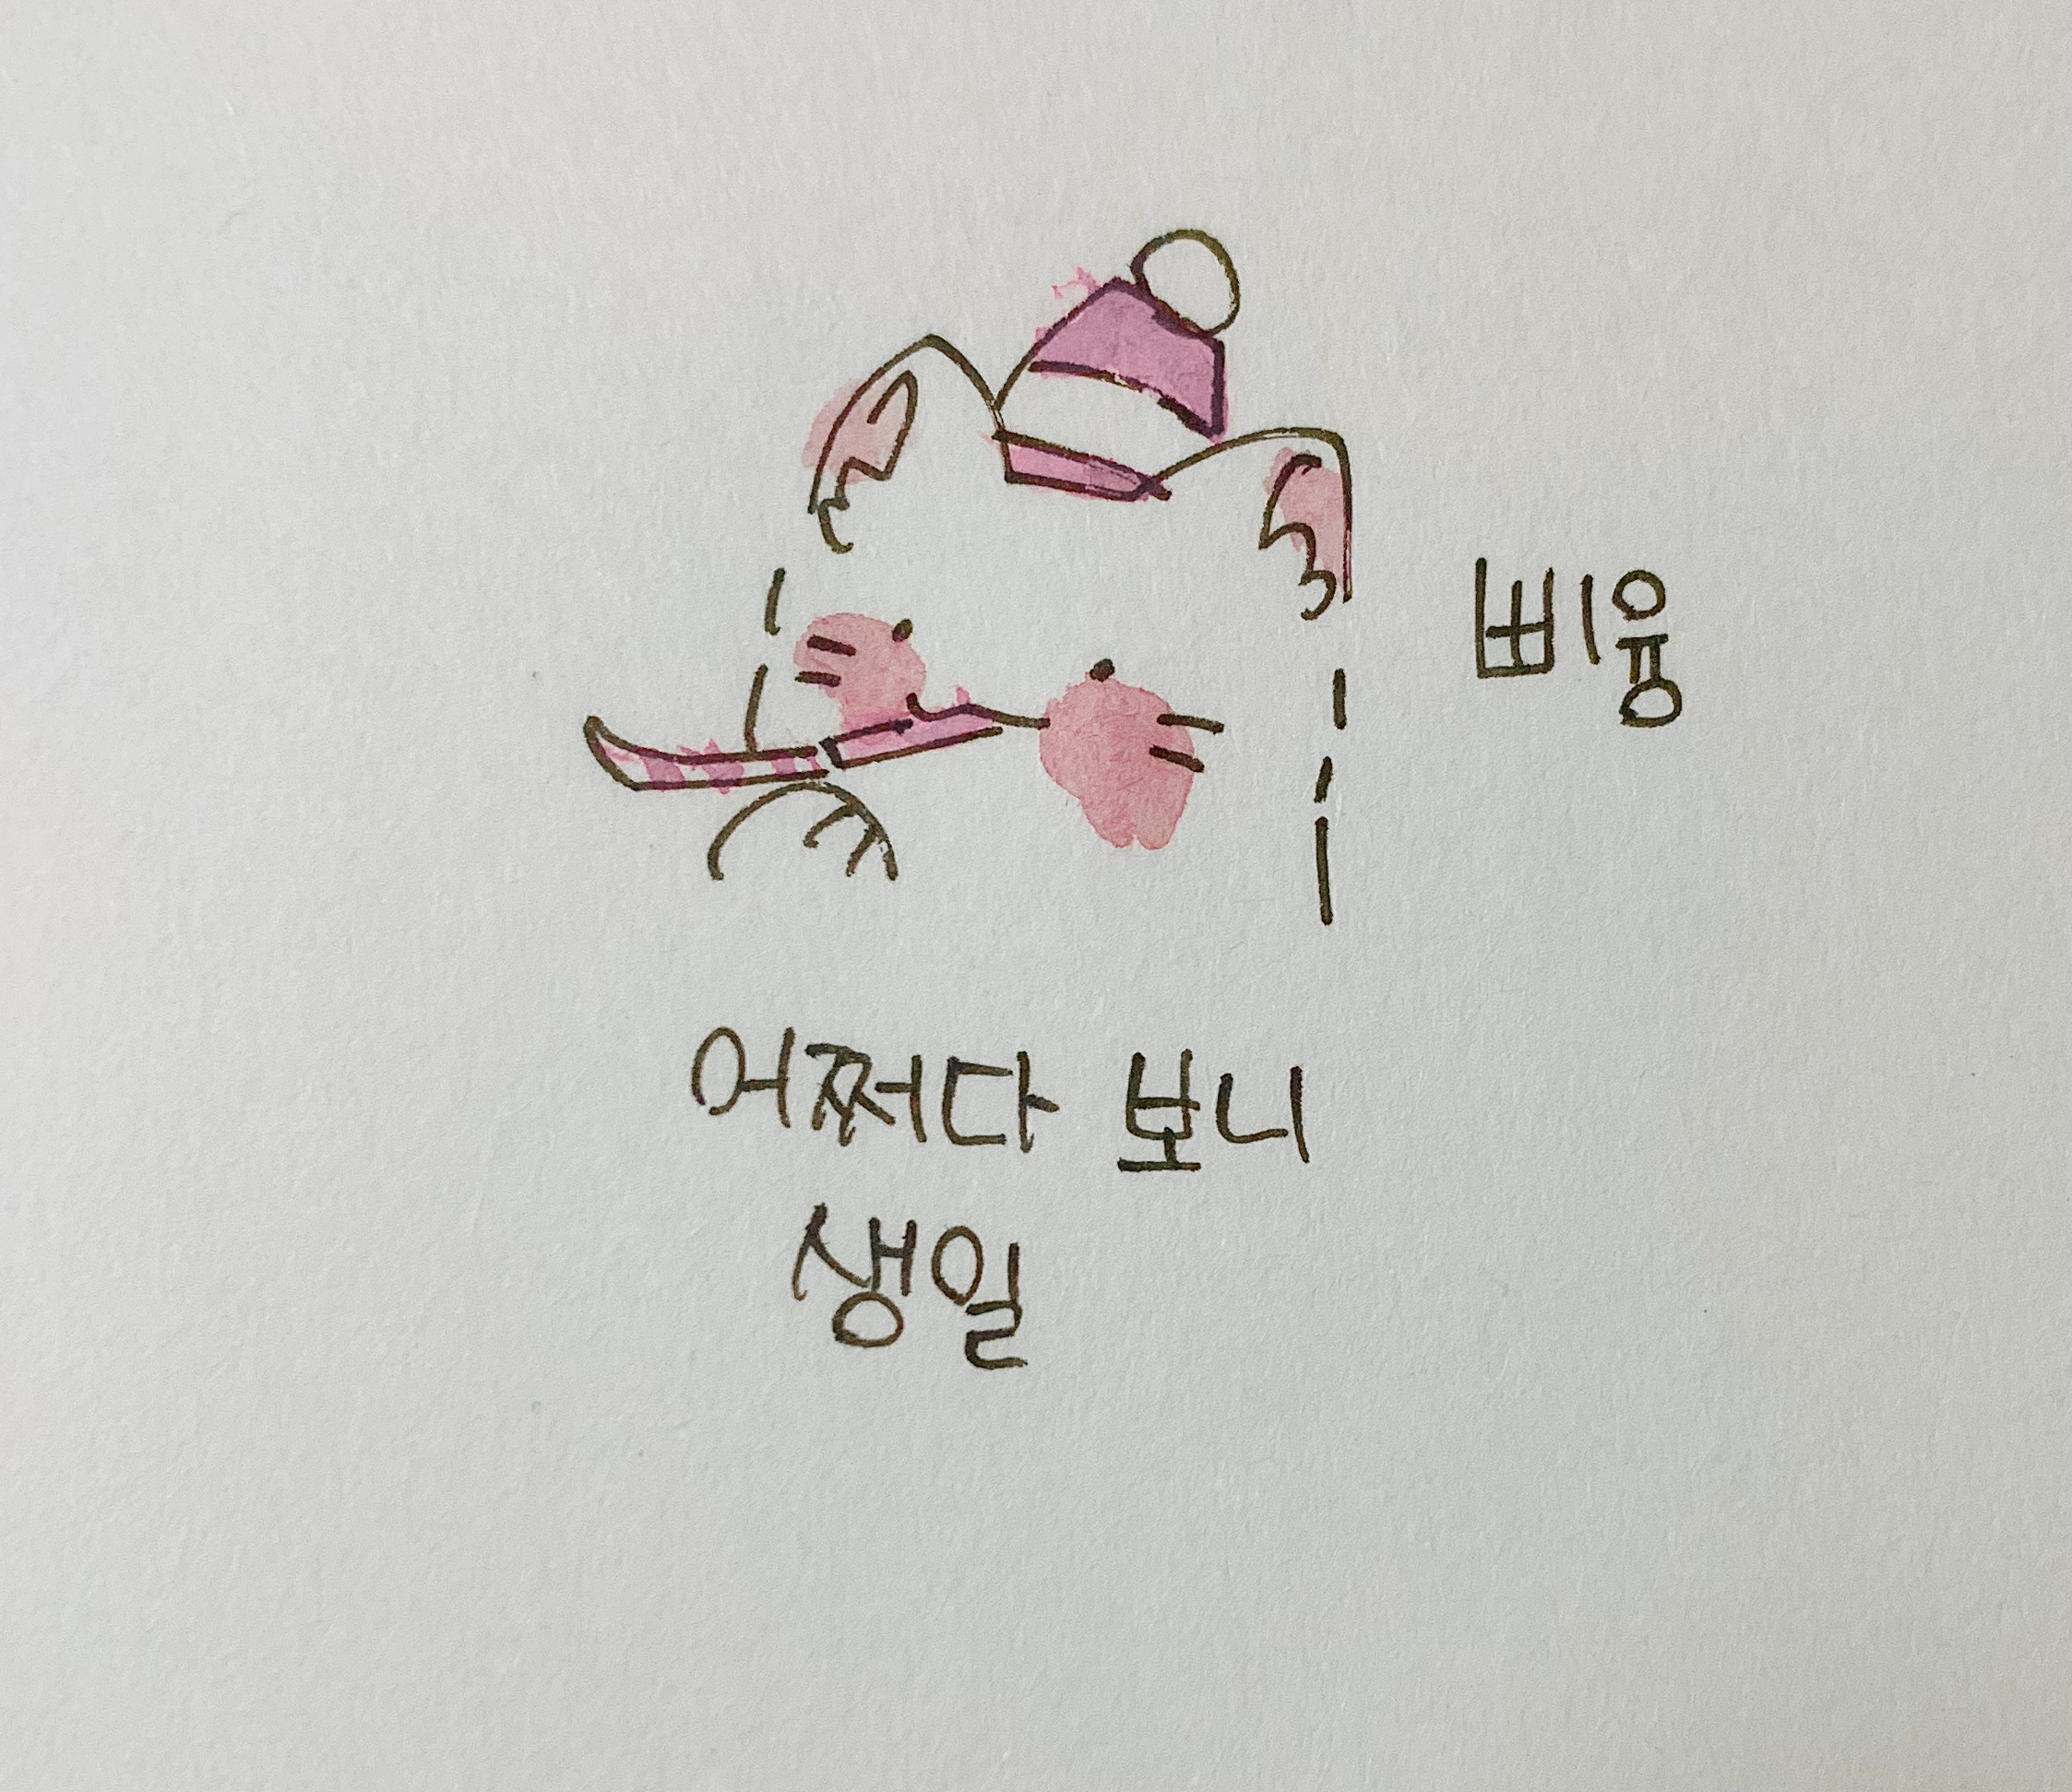 삐융
어쩌다 보니
생일